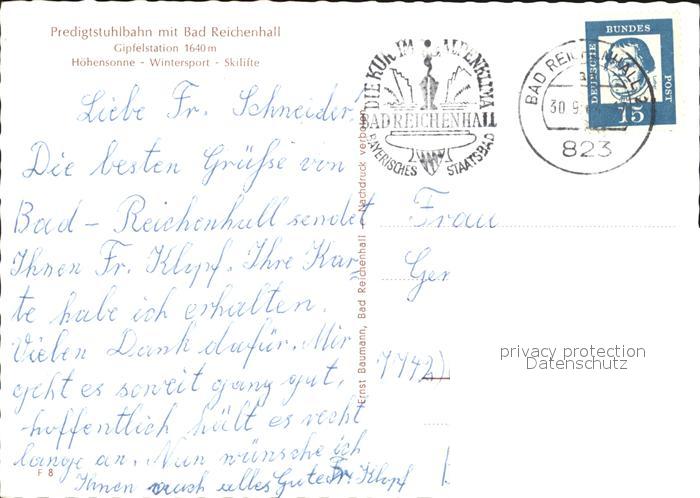 Predigtstuhlbahn mit Bad Reichenhall
Gipfelstation 1640 m
Höhensonne - Wintersport - Skilifte
Liebe Fr. Schneider!
Die besten Grüße von
Bad - Reichenhall sendet
Ihnen Fr. Klopf. Ihre Kar-
te habe ich erhalten.
Vielen Dank dafür. Mir
geht es soweit ganz gut,
hoffentlich hält es recht
lange an. Nun wünsche ich
Ihnen auch alles Gute Fr. Klopf
F 8
Ernst Baumann, Bad Reichenhall - Nachdruck verboten
DIE KUR IM ALPENKLIMA
BAD REICHENHALL
BAYERISCHES STAATSBAD
BAD REICHENHALL 2
30.9.
823
DEUTSCHE BUNDES POST
15
Frau
Ger
7742)
privacy protection
Datenschutz